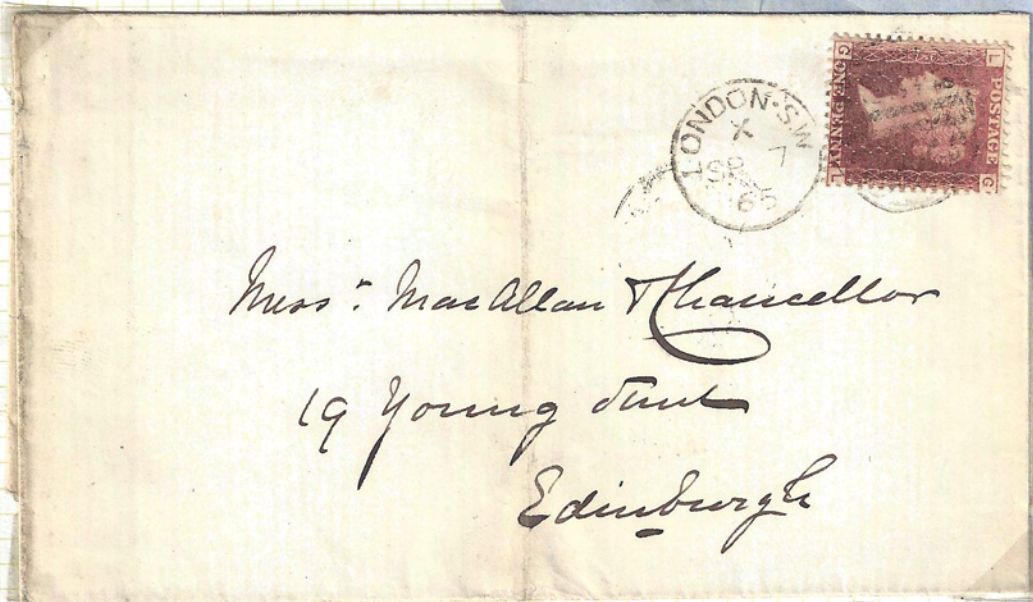 LONDON·S.W
X
SP 7
65
L POSTAGE G
G ONE PENNY L
Mess.rs MacAllan & Chancellor
19 Young Street
Edinburgh